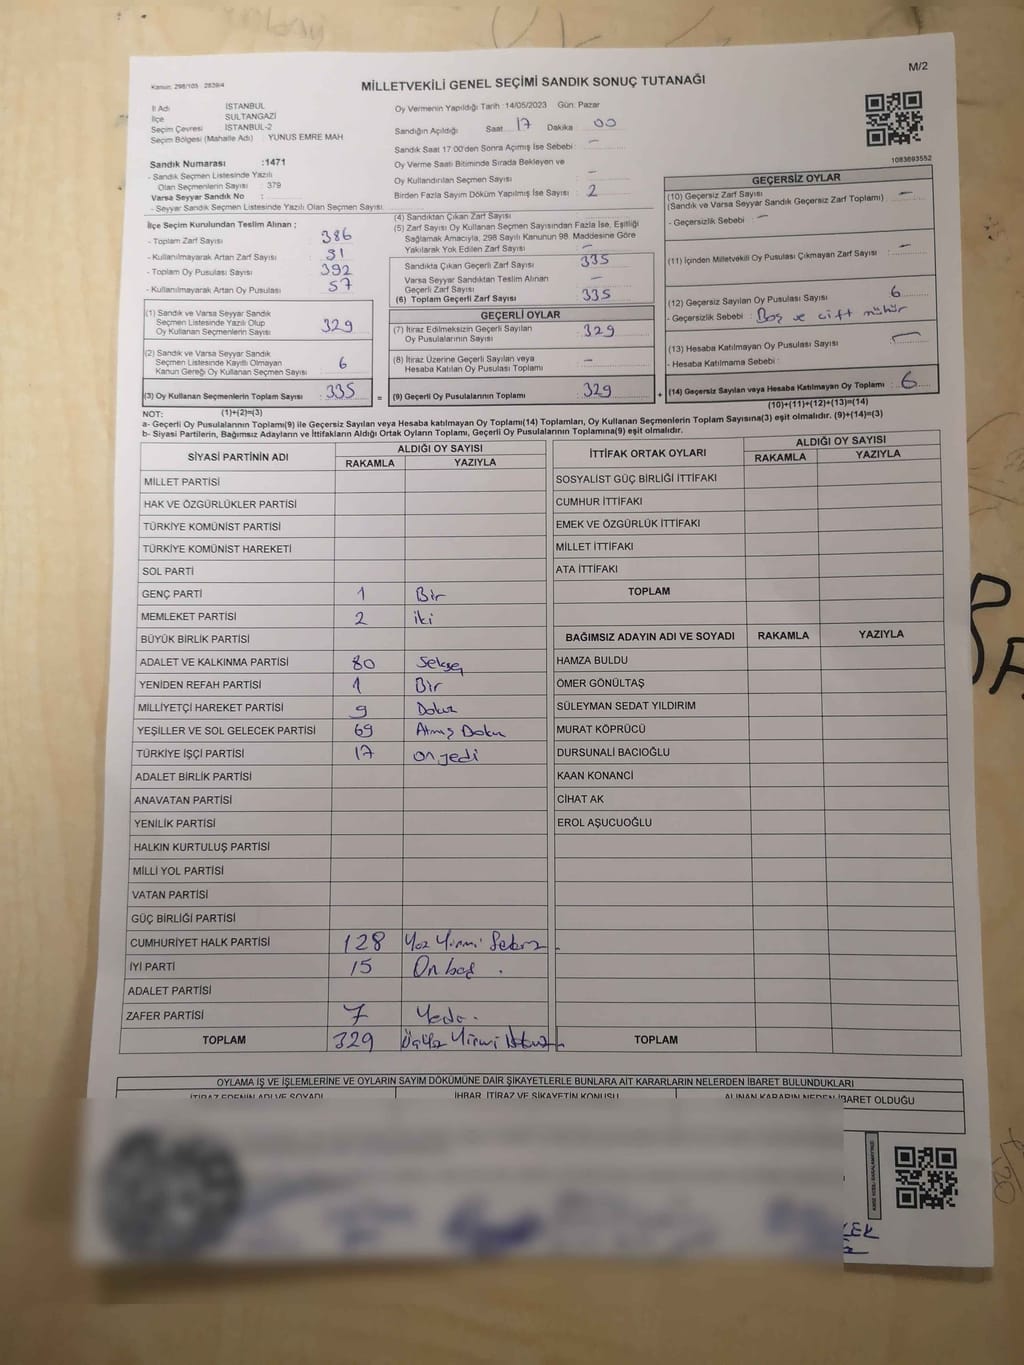 M/2
Kanun: 298/103 2839/4
MİLLETVEKİLİ GENEL SEÇİMİ SANDIK SONUÇ TUTANAĞI
İl Adı İSTANBUL
İlçe SULTANGAZİ
Seçim Çevresi İSTANBUL-2
Seçim Bölgesi (Mahalle Adı) : YUNUS EMRE MAH
Sandık Numarası :1471
- Sandık Seçmen Listesinde Yazılı
Olan Seçmenlerin Sayısı : 379
Varsa Seyyar Sandık No :
- Seyyar Sandık Seçmen Listesinde Yazılı Olan Seçmen Sayısı:
Oy Vermenin Yapıldığı Tarih :14/05/2023 Gün: Pazar
Sandığın Açıldığı Saat 17 Dakika 00
Sandık Saat 17:00'den Sonra Açılmış İse Sebebi : -
Oy Verme Saati Bitiminde Sırada Bekleyen ve
Oy Kullandırılan Seçmen Sayısı : -
Birden Fazla Sayım Döküm Yapılmış İse Sayısı : 2
1083693552
İlçe Seçim Kurulundan Teslim Alınan ;
- Toplam Zarf Sayısı : 386
- Kullanılmayarak Artan Zarf Sayısı : 51
- Toplam Oy Pusulası Sayısı : 392
- Kullanılmayarak Artan Oy Pusulası : 57
(1) Sandık ve Varsa Seyyar Sandık
Seçmen Listesinde Yazılı Olup
Oy Kullanan Seçmenlerin Sayısı : 329
(2) Sandık ve Varsa Seyyar Sandık
Seçmen Listesinde Kayıtlı Olmayan
Kanun Gereği Oy Kullanan Seçmen Sayısı : 6
(3) Oy Kullanan Seçmenlerin Toplam Sayısı : 335
(1)+(2)=(3)
(4) Sandıktan Çıkan Zarf Sayısı :
(5) Zarf Sayısı Oy Kullanan Seçmen Sayısından Fazla İse, Eşitliği
Sağlamak Amacıyla; 298 Sayılı Kanunun 98. Maddesine Göre
Yakılarak Yok Edilen Zarf Sayısı : -
Sandıkta Çıkan Geçerli Zarf Sayısı : 335
Varsa Seyyar Sandıktan Teslim Alınan
Geçerli Zarf Sayısı : -
(6) Toplam Geçerli Zarf Sayısı : 335
GEÇERLİ OYLAR
(7) İtiraz Edilmeksizin Geçerli Sayılan
Oy Pusulalarının Sayısı : 329
(8) İtiraz Üzerine Geçerli Sayılan veya
Hesaba Katılan Oy Pusulası Toplamı : -
= (9) Geçerli Oy Pusulalarının Toplamı : 329
GEÇERSİZ OYLAR
(10) Geçersiz Zarf Sayısı : -
(Sandık ve Varsa Seyyar Sandık Geçersiz Zarf Toplamı)
- Geçersizlik Sebebi : -
(11) İçinden Milletvekili Oy Pusulası Çıkmayan Zarf Sayısı : -
(12) Geçersiz Sayılan Oy Pusulası Sayısı : 6
- Geçersizlik Sebebi : Boş ve çift mühür
(13) Hesaba Katılmayan Oy Pusulası Sayısı : -
- Hesaba Katılmama Sebebi :
+ (14) Geçersiz Sayılan veya Hesaba Katılmayan Oy Toplamı : 6
(10)+(11)+(12)+(13)=(14)
NOT:
a- Geçerli Oy Pusulalarının Toplamı(9) ile Geçersiz Sayılan veya Hesaba katılmayan Oy Toplamı(14) Toplamları, Oy Kullanan Seçmenlerin Toplam Sayısına(3) eşit olmalıdır. (9)+(14)=(3)
b- Siyasi Partilerin, Bağımsız Adayların ve İttifakların Aldığı Ortak Oyların Toplamı, Geçerli Oy Pusulalarının Toplamına(9) eşit olmalıdır.
SİYASİ PARTİNİN ADI ALDIĞI OY SAYISI
RAKAMLA YAZIYLA
MİLLET PARTİSİ
HAK VE ÖZGÜRLÜKLER PARTİSİ
TÜRKİYE KOMÜNİST PARTİSİ
TÜRKİYE KOMÜNİST HAREKETİ
SOL PARTİ
GENÇ PARTİ 1 Bir
MEMLEKET PARTİSİ 2 iki
BÜYÜK BİRLİK PARTİSİ
ADALET VE KALKINMA PARTİSİ 80 Seksen
YENİDEN REFAH PARTİSİ 1 Bir
MİLLİYETÇİ HAREKET PARTİSİ 9 Dokuz
YEŞİLLER VE SOL GELECEK PARTİSİ 69 Atmış Dokuz
TÜRKİYE İŞÇİ PARTİSİ 17 on yedi
ADALET BİRLİK PARTİSİ
ANAVATAN PARTİSİ
YENİLİK PARTİSİ
HALKIN KURTULUŞ PARTİSİ
MİLLİ YOL PARTİSİ
VATAN PARTİSİ
GÜÇ BİRLİĞİ PARTİSİ
CUMHURİYET HALK PARTİSİ 128 Yüz Yirmi Sekiz
İYİ PARTİ 15 On beş
ADALET PARTİSİ
ZAFER PARTİSİ 7 Yedi
TOPLAM 329 Üçyüz Yirmi Dokuz
İTTİFAK ORTAK OYLARI ALDIĞI OY SAYISI
RAKAMLA YAZIYLA
SOSYALİST GÜÇ BİRLİĞİ İTTİFAKI
CUMHUR İTTİFAKI
EMEK VE ÖZGÜRLÜK İTTİFAKI
MİLLET İTTİFAKI
ATA İTTİFAKI
TOPLAM
BAĞIMSIZ ADAYIN ADI VE SOYADI RAKAMLA YAZIYLA
HAMZA BULDU
ÖMER GÖNÜLTAŞ
SÜLEYMAN SEDAT YILDIRIM
MURAT KÖPRÜCÜ
DURSUNALİ BACIOĞLU
KAAN KONANCİ
CİHAT AK
EROL AŞUCUOĞLU
TOPLAM
OYLAMA İŞ VE İŞLEMLERİNE VE OYLARIN SAYIM DÖKÜMÜNE DAİR ŞİKAYETLERLE BUNLARA AİT KARARLARIN NELERDEN İBARET BULUNDUKLARI
İTİRAZ EDENİN ADI VE SOYADI İHBAR, İTİRAZ VE ŞİKAYETİN KONUSU ALINAN KARARIN NEDEN İBARET OLDUĞU